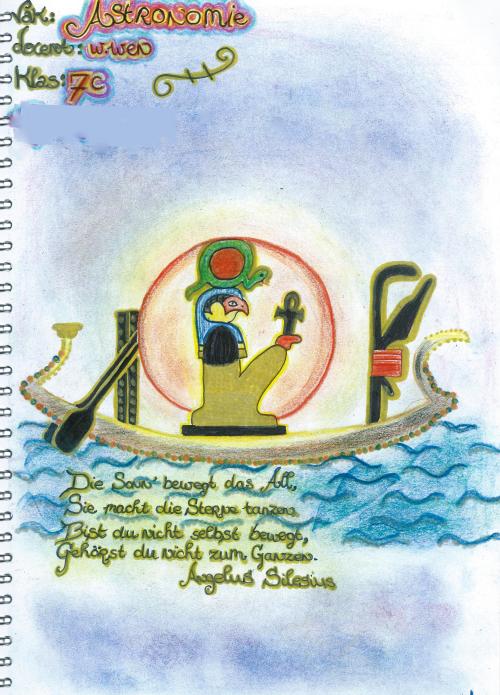 Vak: Astronomie
docent: W.Wen
Klas: 7c
Die Sonn' bewegt das All,
Sie macht die Sterne tanzen.
Bist du nicht selbst bewegt,
Gehörst du nicht zum Ganzen.
Angelus Silesius